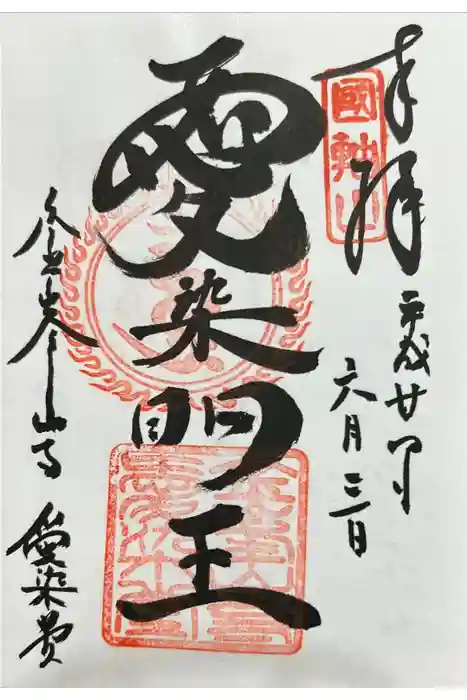 奉拝
國軸山
平成廿八年
六月三日
愛染明王
金峯山寺 愛染